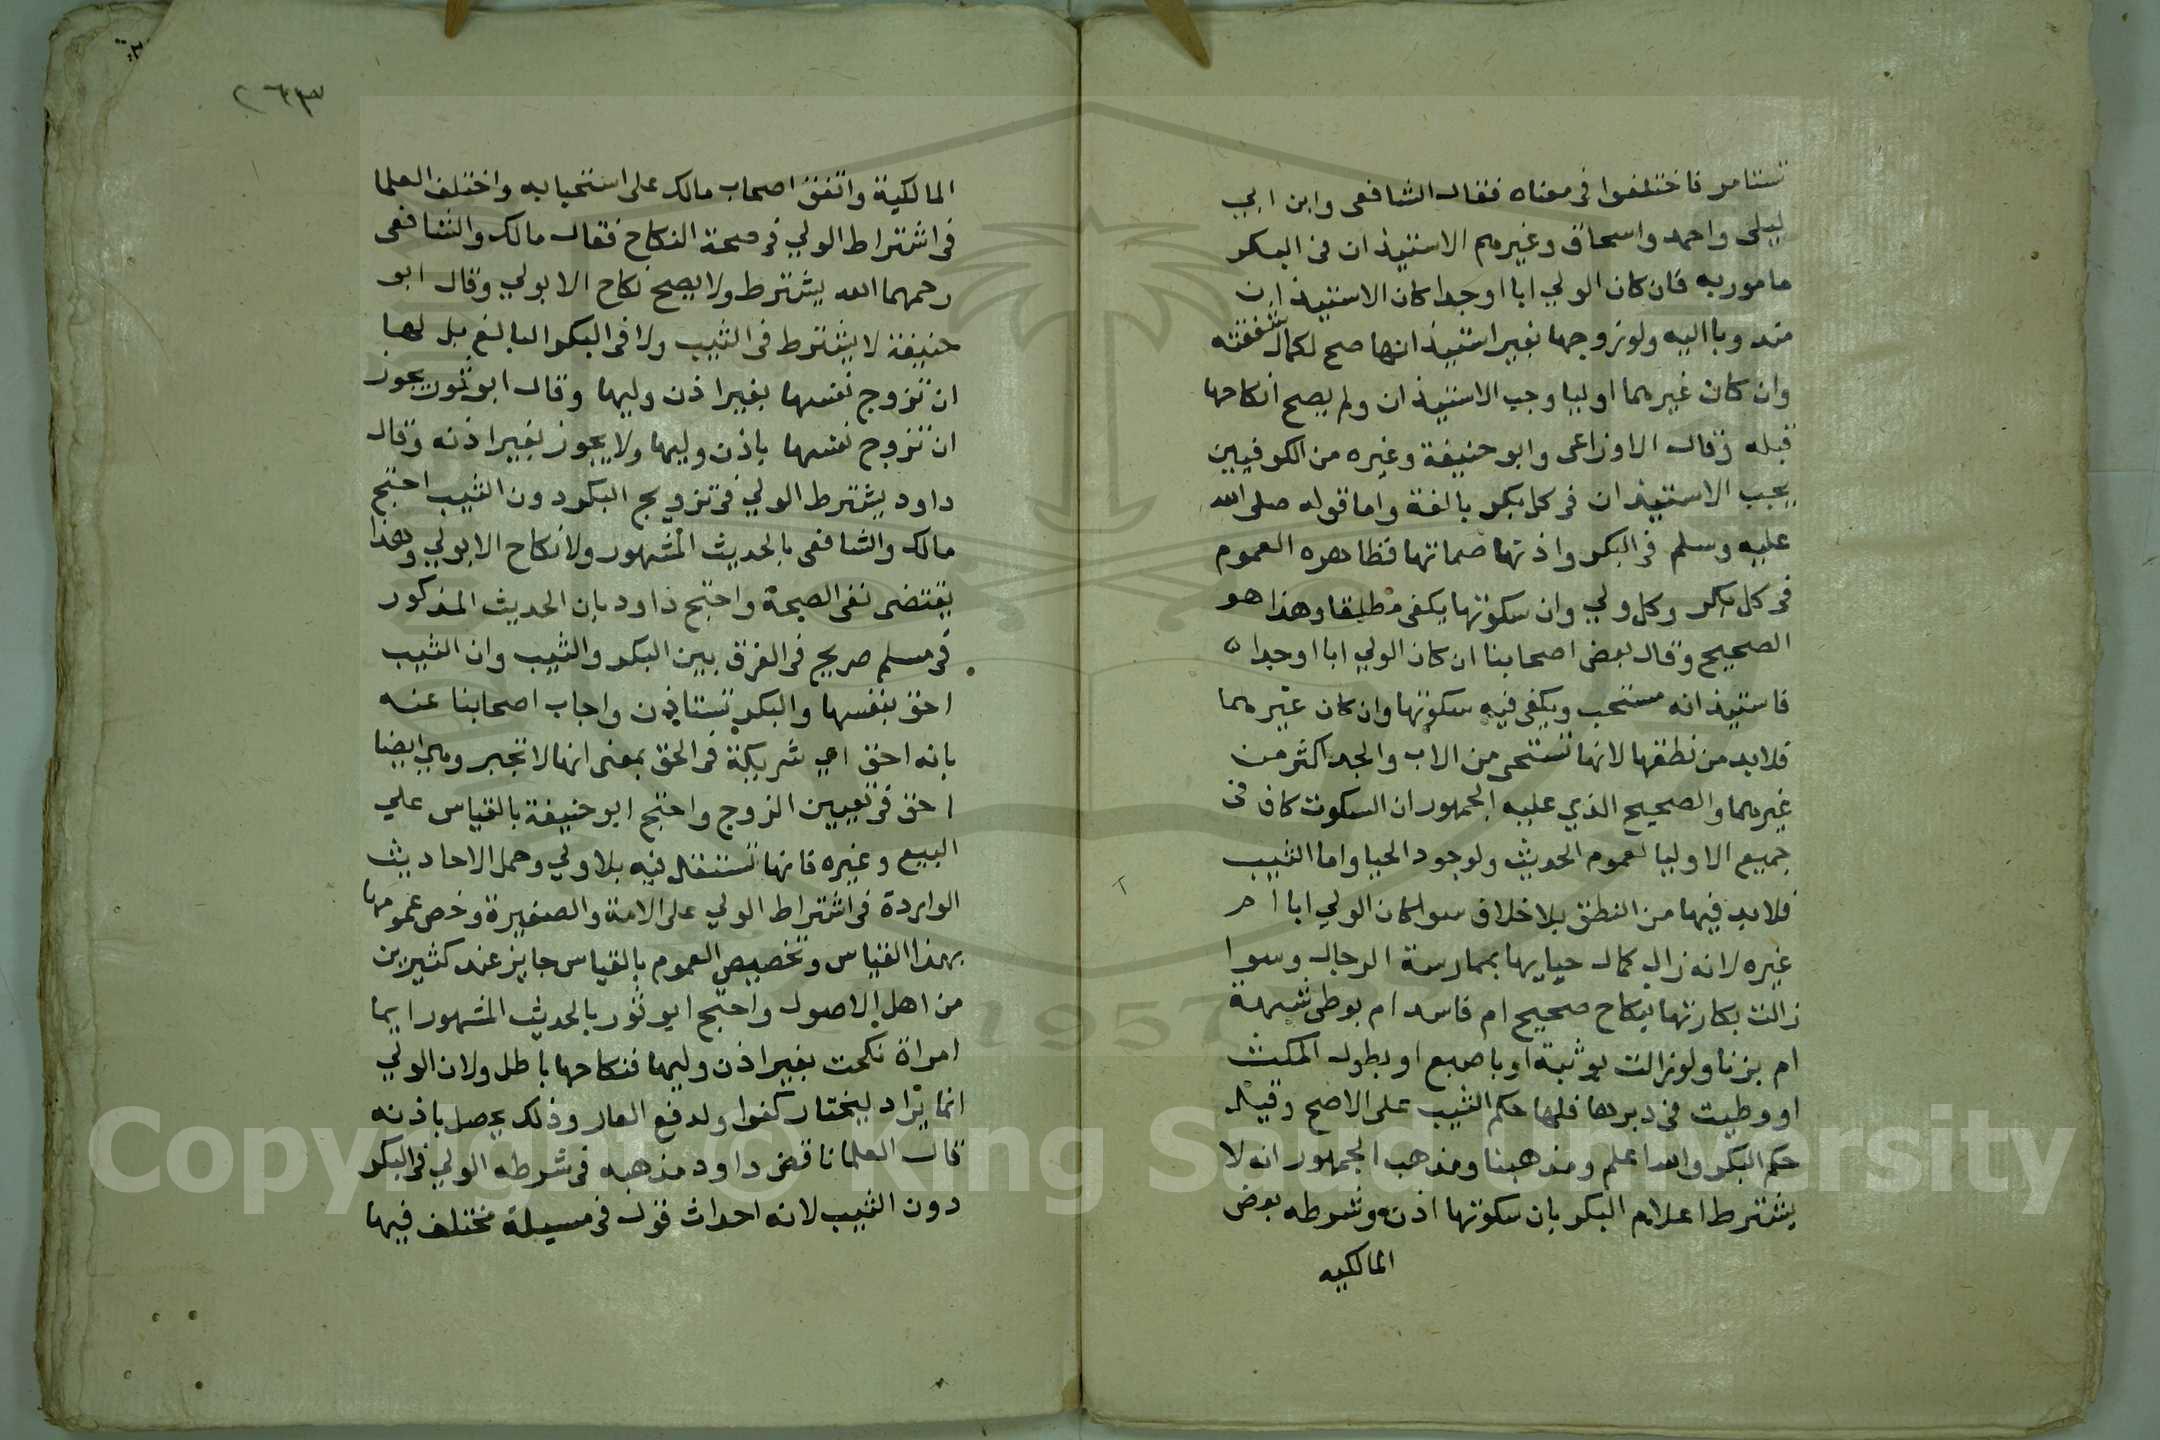 تستامر فاختلفوا في معناه فقال الشافعى وابن ابي
ليلى واحمد واسحاق وغيرهم الاستيذان في البكر
مامور به فان كان الولي ابا اوجدا كان الاستيذان
مندوبا اليه ولو زوجها بغير استيذانها صح لكمال شفقته
وان كان غيرهما اوليا وجب الاستيذان ولم يصح انكاحها
قبله وقال الاوزاعى وابو حنيفة وغيره من الكوفيين
يجب الاستيذان في كل بكر بالغة واما قوله صلى الله
عليه وسلم في البكر واذنها صماتها فظاهره العموم
في كل بكر وكل ولي وان سكوتها يكفى مطلقا وهذا هو
الصحيح وقال بعض اصحابنا ان كان الولي ابا اوجدا ه
فاستيذانه مستحب ويكفى فيه سكوتها وان كان غيرهما
فلابد من نطقها لانها تستحى من الاب والجد اكثر من
غيرهما والصحيح الذي عليه الجمهور ان السكوت كاف في
جميع الاوليا لعموم الحديث ولوجود الحيا واما الثيب
فلابد فيها من النطق بلا خلاف سوا كان الولي ابا ام
غيره لانه زال كمال حيايها بممارسة الرجال وسوا
زالت بكارتها بنكاح صحيح ام فاسد ام بوطى شبهة
ام بزنا ولو زالت بوثبة او باصبع او بطول المكث
او وطيت في دبرها فلها حكم الثيب على الاصح وقيل
حكم البكر والله اعلم ومذهبنا ومذهب الجمهور انه لا
يشترط اعلام البكر بان سكوتها اذن وشرطه بعض
المالكيه
٢٦٣
المالكية واتفق اصحاب مالك على استحبابه واختلف العلما
في اشتراط الولي في صحة النكاح فقال مالك والشافعى
رحمهما الله يشترط ولا يصح نكاح الا بولي وقال ابو
حنيفة لا يشترط في الثيب ولا في البكر البالغ بل لها
ان تزوج نفسها بغير اذن وليها وقال ابو ثور يجوز
ان تزوج نفسها باذن وليها ولا يجوز بغير اذنه وقال
داود يشترط الولي في تزويج البكر دون الثيب احتج
مالك والشافعى بالحديث المشهور ولا نكاح الا بولي وهذا
يقتضى نفى الصحة واحتج داود بان الحديث المذكور
في مسلم صريح في الفرق بين البكر والثيب وان الثيب
احق بنفسها والبكر تستاذن واجاب اصحابنا عنه
بانه احق اي شريكة في الحق بمعنى انها لا تجبر وهي ايضا
احق في تعيين الزوج واحتج ابو حنيفة بالقياس علي
البيع وغيره فانها تستقل فيه بلا ولي وحمل الاحاديث
الواردة في اشتراط الولي على الامة والصغيرة وخص عمومها
بهذا القياس وتخصيص العموم بالقياس جايز عند كثيرين
من اهل الاصول واحتج ابو ثور بالحديث المشهور ايما
امراة نكحت بغير اذن وليها فنكاحها باطل ولان الولي
انما يراد ليختار كفوا ولدفع العار وذلك يحصل باذنه
قال العلما ناقض داود مذهبه في شرطه الولي في البكر
دون الثيب لانه احداث قول في مسيلة مختلف فيها
1957
Copyright © King Saud University